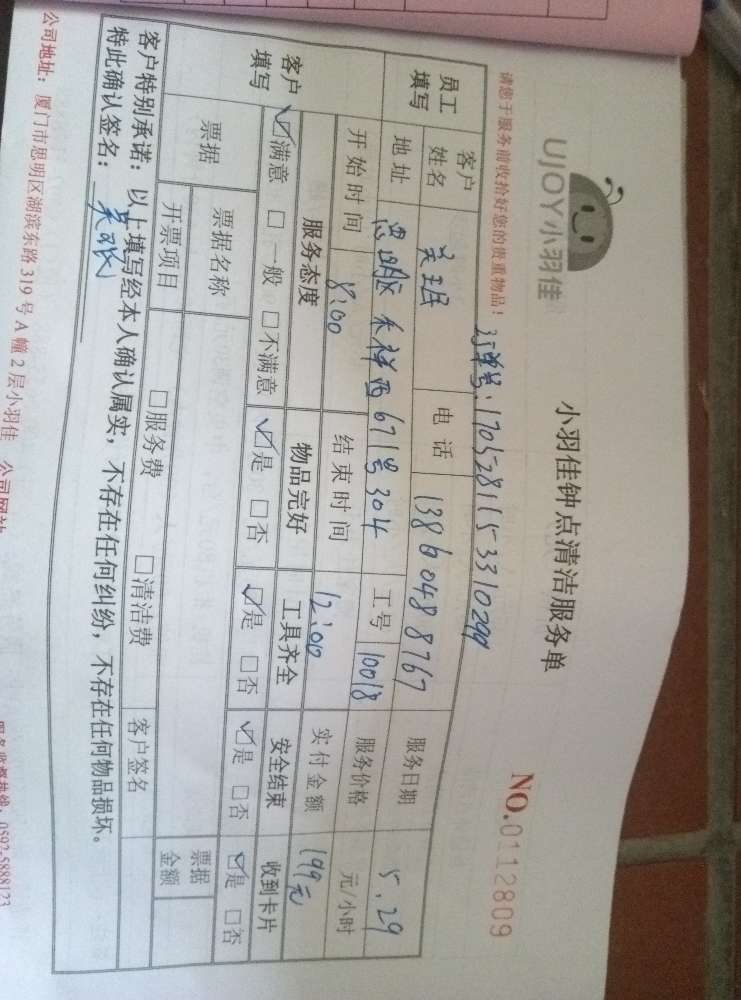 UJOY小羽佳
小羽佳钟点清洁服务单
NO.0112809
请您于服务前收拾好您的贵重物品！
订单号：1705281153310299
员工填写
客户姓名 吴珉 电话 13860488767 服务日期 5.29
地址 思明区禾祥西671号304 工号 10018 服务价格 元/小时
开始时间 8:00 结束时间 12:00 实付金额 199元
客户填写
服务态度 物品完好 工具齐全 安全结束 收到卡片
☑满意 □一般 □不满意 ☑是 □否 ☑是 □否 ☑是 □否 ☑是 □否
票据 票据名称 票据金额
开票项目 □服务费 □清洁费 客户签名
客户特别承诺：以上填写经本人确认属实，不存在任何纠纷，不存在任何物品损坏。
特此确认签名：吴珉
公司地址：厦门市思明区湖滨东路319号A幢2层小羽佳 公司网站 0592-5888123